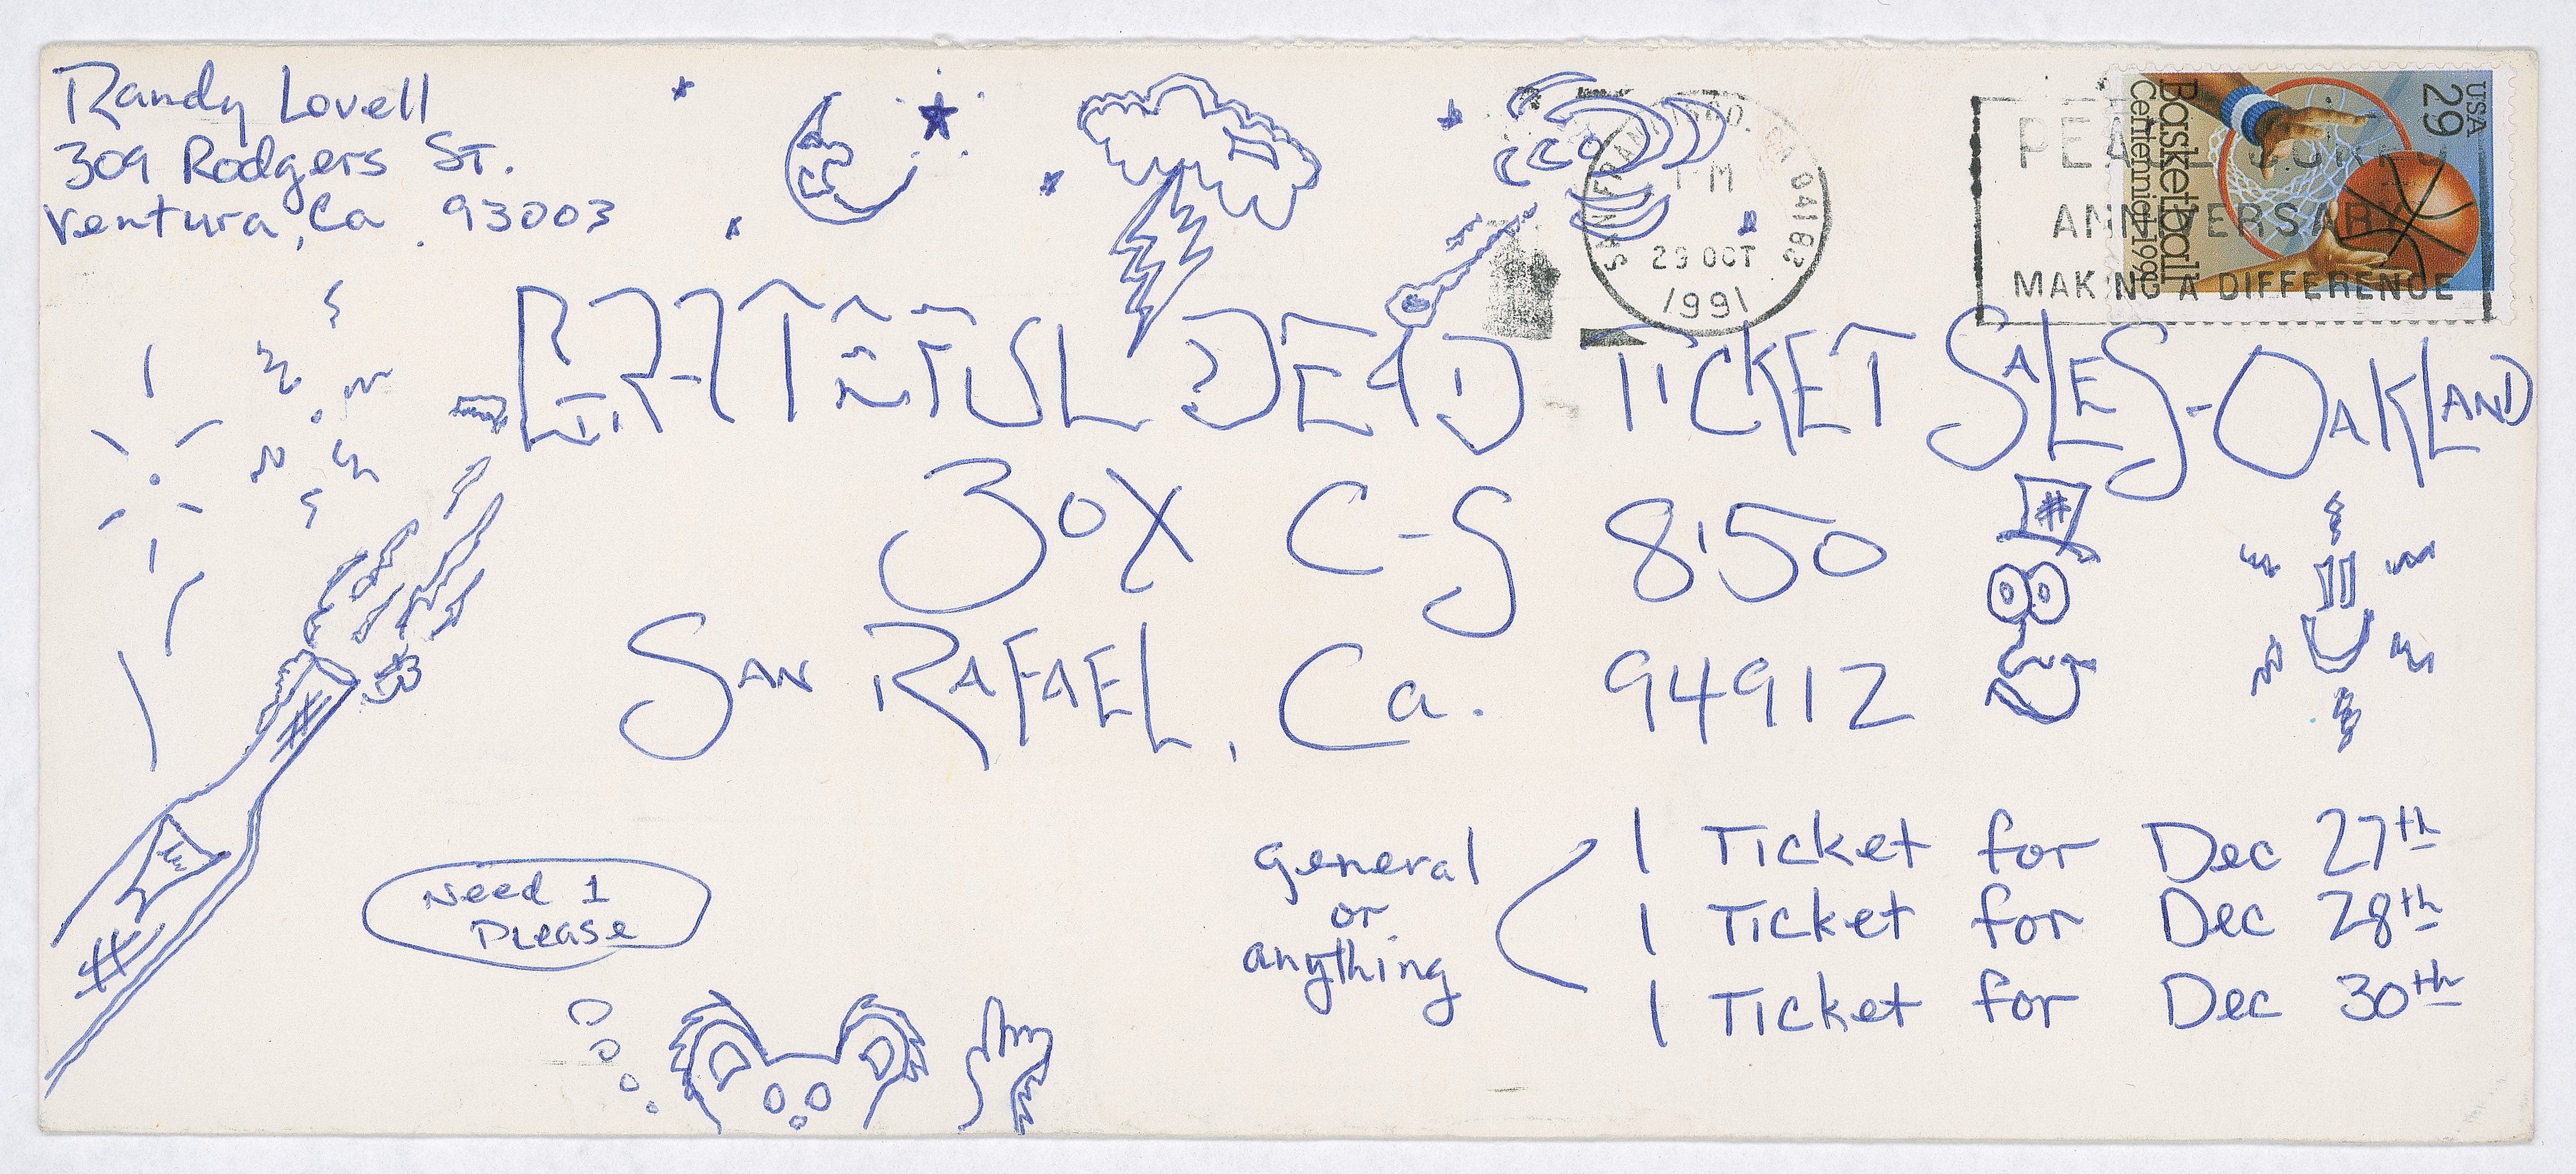 Randy Lovell
309 Rodgers ST.
Ventura, Ca. 93003
SAN FRANCISCO, CA 941 82
PM
29 OCT
1991
PEACE CORPS
ANNIVERSARY
MAKING A DIFFERENCE
USA
29
Basketball
Centennial 1991
GRATEFUL DEAD TICKET SALES-OAKLAND
BOX C-S 8'50
SAN RAFAEL, Ca. 94912
general
or
anything
1 Ticket for Dec 27th
1 Ticket for Dec 28th
1 Ticket for Dec 30th
Need 1
Please